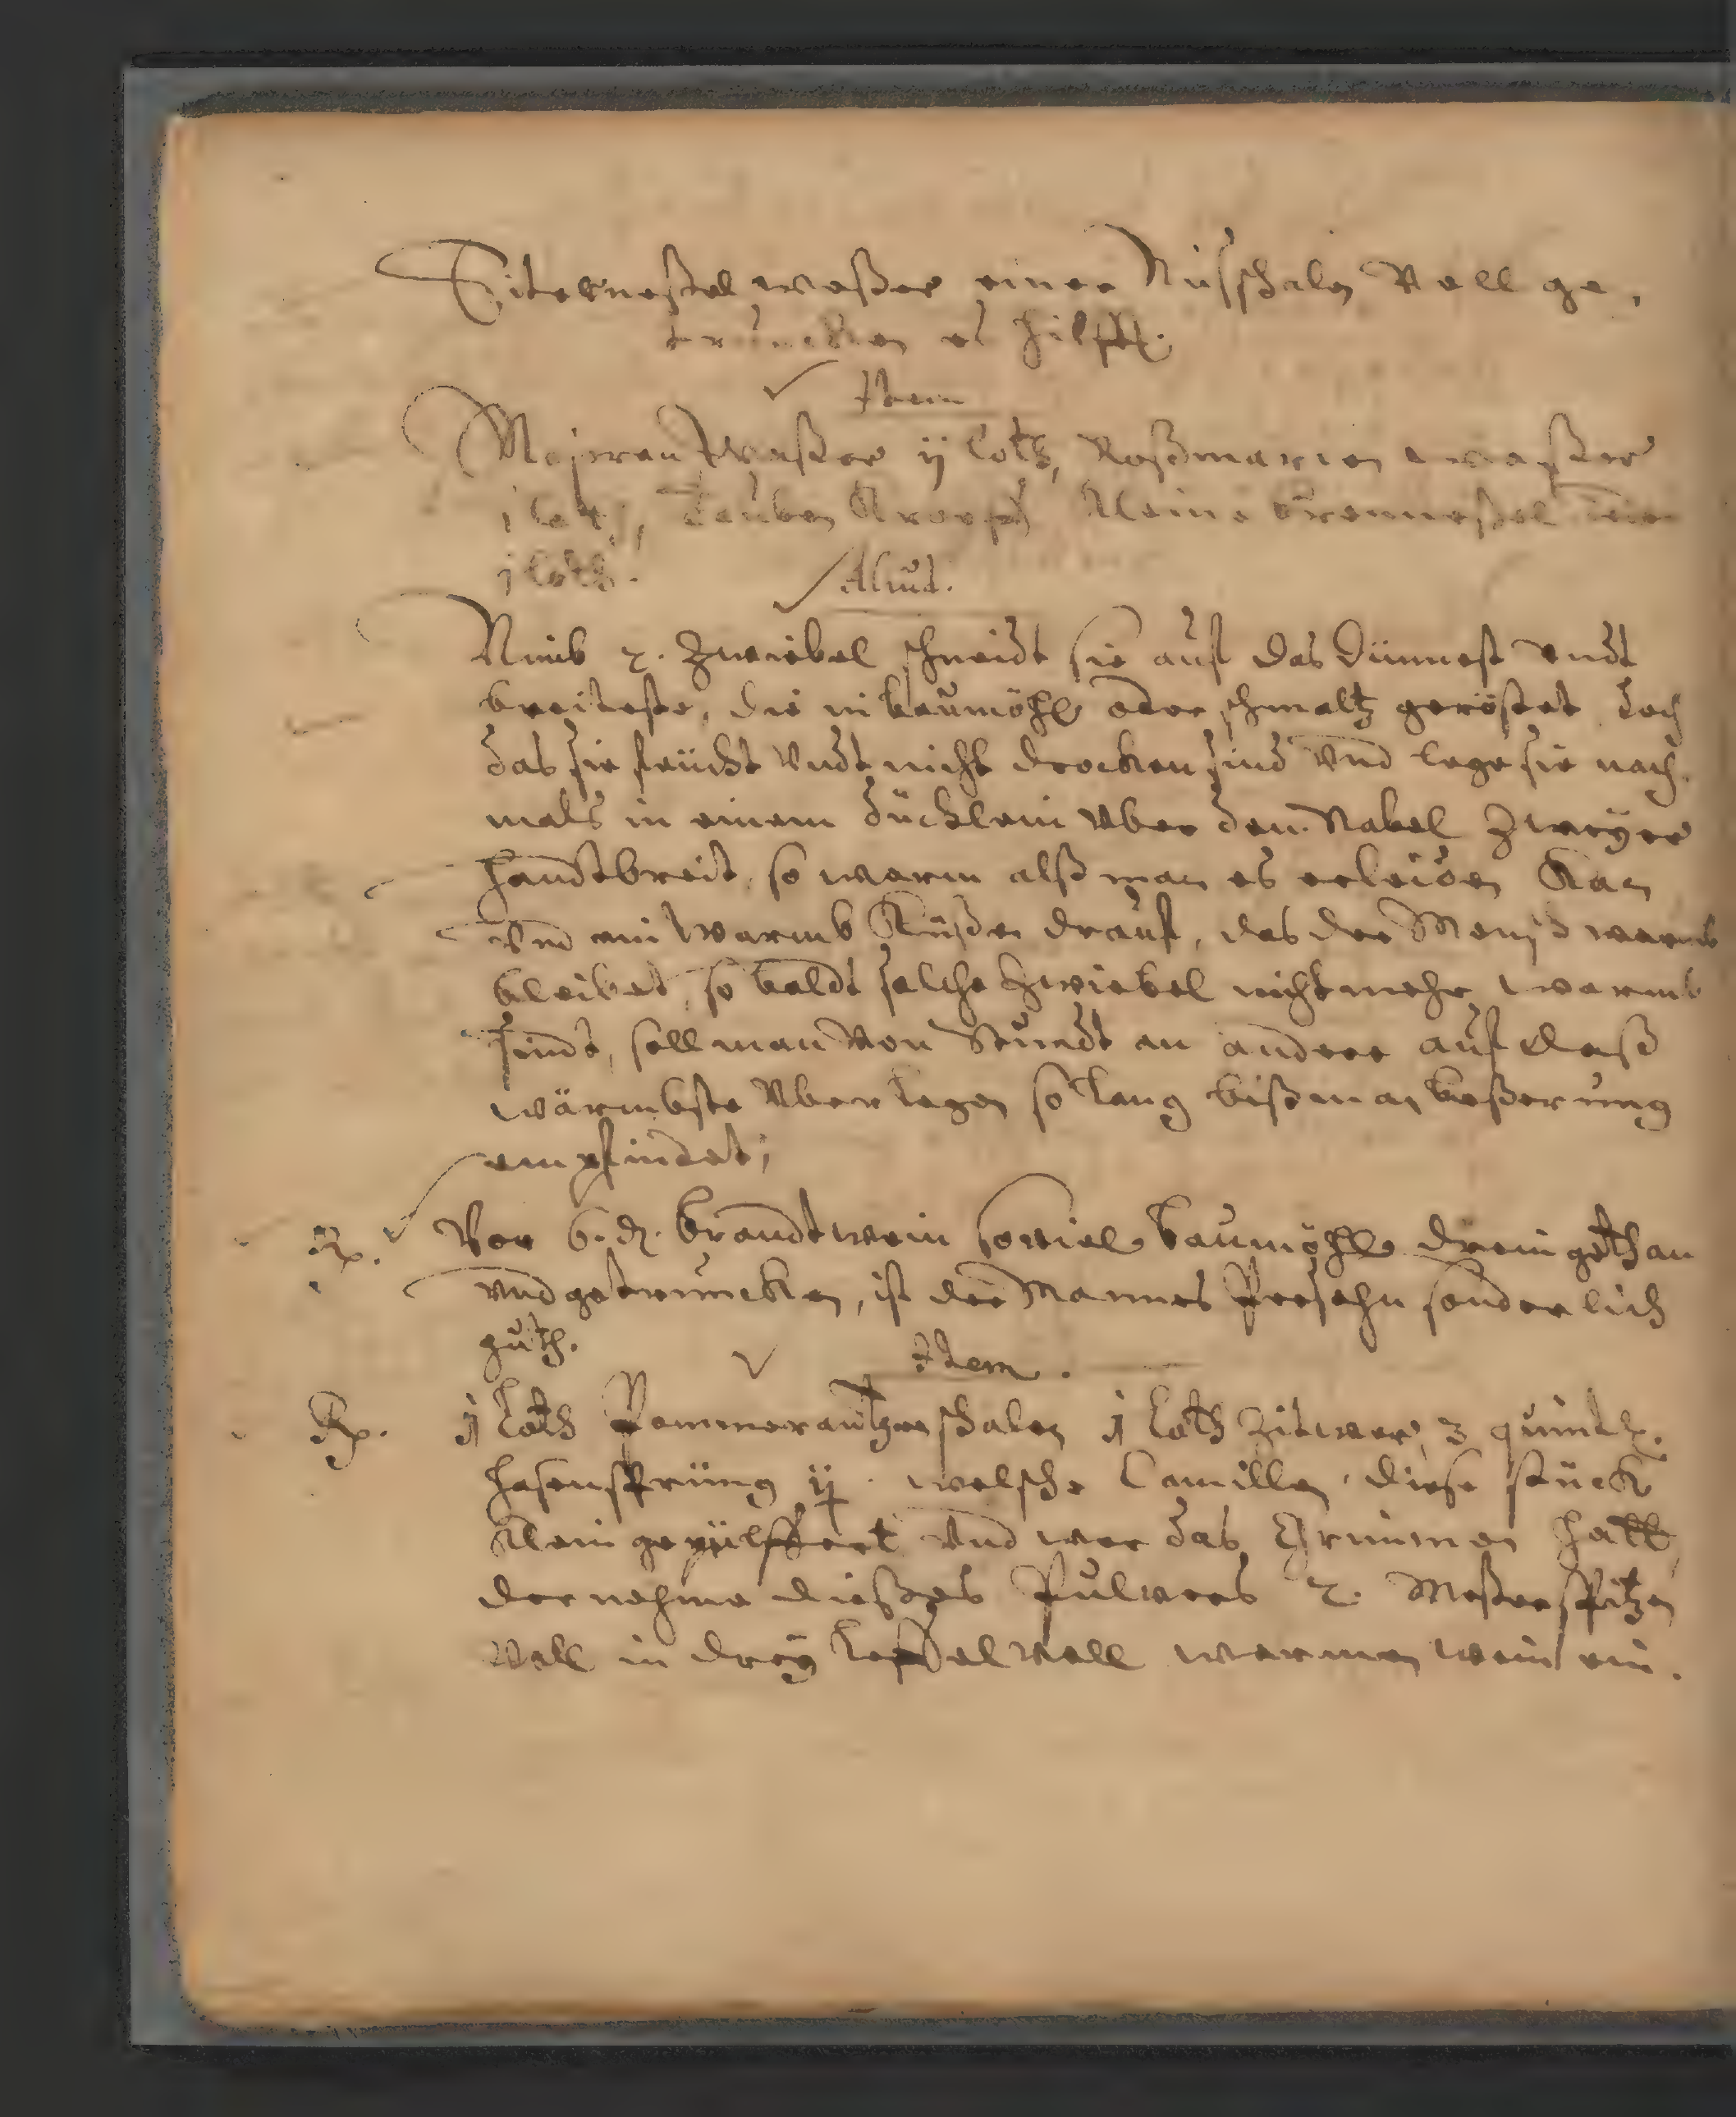 Eiterneßel waßer einer Nusschalen Voll ge,
truncken es hilfft.
Item
Majoran Waßer ij loth, Roßmarien waßer
j loth, Tauben Kropf Kleine brenneßel
j loth.
Aliud.
Nimb 2. Zwiebel schneidt sie auf das dünnest undt
breiteste, die in baumöhl oder schmaltz geröstet doch
das sie feucht Undt nicht drocken sind Vnd lege sie nach
mals in einem düchlein Uber den Nabel Zweyer
handtbreit, so warm alß man es erleiden Kan
Vnd ein Warmb Küßen drauf, das der Mensch warmb
bleibet, so baldt solche Zwiebel nicht mehr warmb
sindt, soll man Von Stundt an andere auf daß
wärmbste Uber legen so lang biß man beßerung
empfindet;
Rp. Vor 6. d. brandtwein soviel baumöhl drein gethan
Vnd getruncken, ist der Mannes Persohn sonderlich
guth.
Item.
Rp. ij loth Pommerantzenschalen ij loth Zitwer, 3 quintl.
hasensprüng ij welsche Camillen, diese stück
Klein gepülffert Vnd wer das Grimmen hatt,
der nehme dießes Pulvers 2. Meßerspitzen
Voll in drey Leffel Voll warmen wein ein.